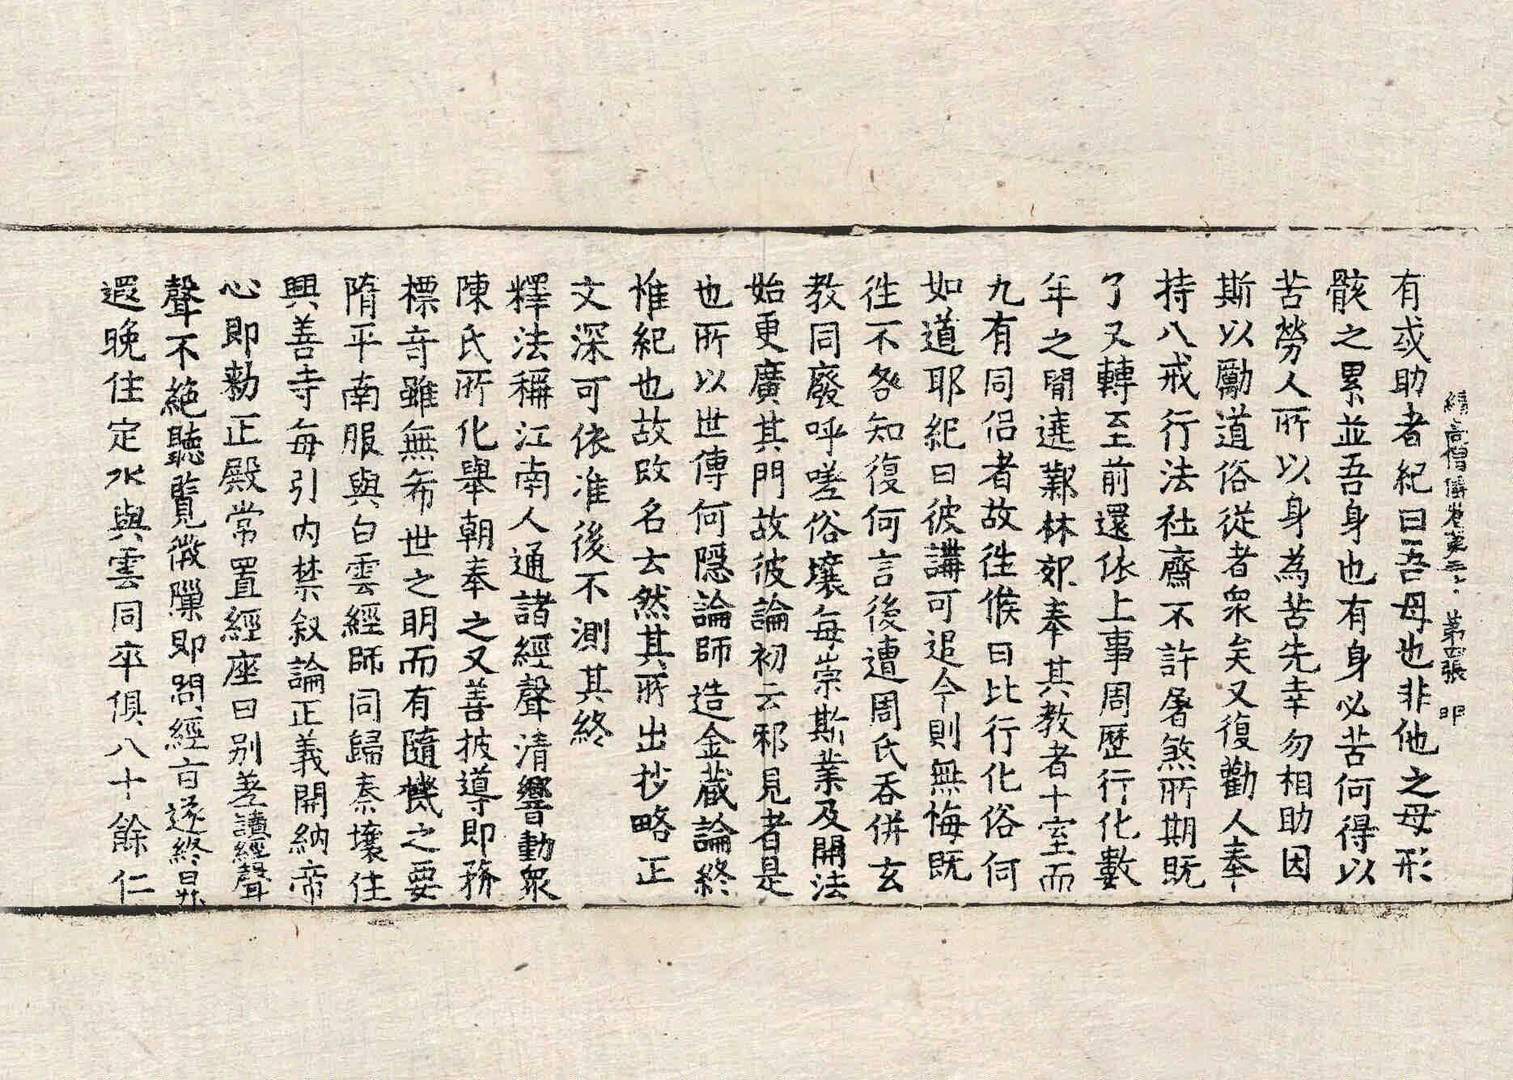 續高僧傳卷第三十 第五張 明
有或助者紀曰吾母也非他之母形
骸之累並吾身也有身必苦何得以
苦勞人所以身為苦先幸勿相助因
斯以勵道俗從者衆矣又復勸人奉
持八戒行法社齋不許屠煞所期既
了又轉至前還依上事周歷行化數
年之間遶鄴林郊奉其教者十室而
九有同侣者故往候曰比行化俗何
如道耶紀曰彼講可追今則無悔既
往不咎知復何言後遭周氏吞併玄
教同廢呼嗟俗壤每崇斯業及開法
始更廣其門故彼論初云邪見者是
也所以世傳何隱論師造金藏論終
惟紀也故改名云然其所出抄略正
文深可依准後不測其終
釋法稱江南人通諸經聲清響動衆
陳氏所化舉朝奉之又善披導即務
標奇雖無希世之明而有隨機之要
隋平南服與白雲經師同歸秦壤住
興善寺每引内禁叙論正義開納帝
心即勑正殿常置經座日别差讀經聲
聲不絶聽覽微隟即問經旨遂終日昇
遐晚住定水與雲同卒俱八十餘仁